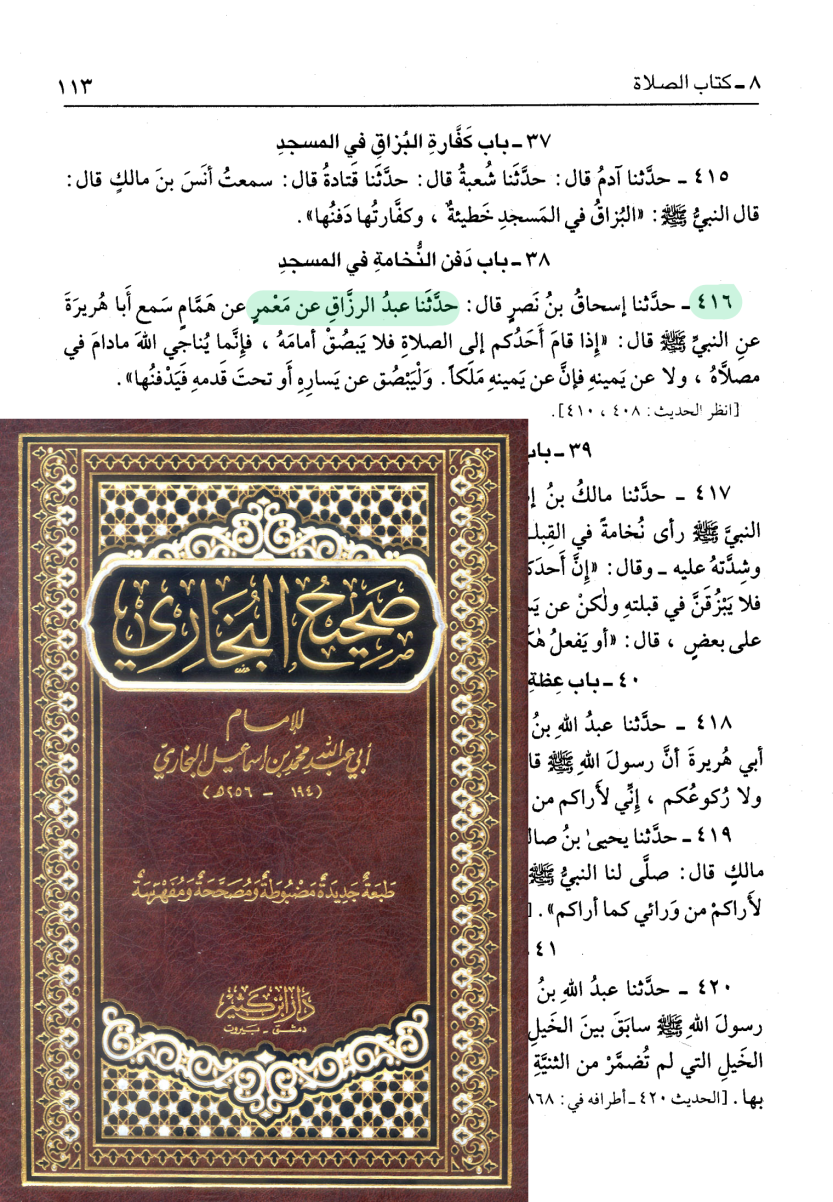 ٨ ـ كتاب الصلاة
١١٣
٣٧ ـ باب كَفَّارةِ البُزاقِ في المسجدِ
٤١٥ ـ حدَّثنا آدمُ قال: حدَّثَنا شُعبةُ قال: حدَّثَنا قَتادةُ قال: سمعتُ أنَسَ بنَ مالكٍ قال:
قال النبيُّ ﷺ: «البُزاقُ في المَسجدِ خَطيئةٌ، وكفَّارتُها دَفنُها».
٣٨ ـ باب دَفن النُّخامةِ في المسجدِ
٤١٦ ـ حدَّثنا إسحاقُ بنُ نَصرٍ قال: حدَّثَنا عبدُ الرزَّاقِ عن مَعْمرٍ عن هَمَّامٍ سَمع أَبا هُريرَةَ
عنِ النبيِّ ﷺ قال: «إِذا قامَ أَحَدُكم إلى الصلاةِ فلا يَبصُقْ أمامَهُ، فإنَّما يُناجي اللهَ مادامَ في
مصلاَّهُ، ولا عن يَمينهِ فإنَّ عن يَمينهِ مَلَكاً. وَلْيَبْصُق عن يَسارِهِ أَو تحتَ قَدمهِ فَيَدْفنُها».
[انظر الحديث: ٤٠٨، ٤١٠].
٣٩ ـ باب
٤١٧ ـ حدَّثنا مالكُ بنُ
النبيَّ ﷺ رأى نُخامةً في
وشِدَّتهُ عليه ـ وقال: «إنَّ
فلا يَبْزُقَنَّ في قبلتهِ ولكنْ عن
على بعضٍ، قال: «أو يَفعلُ
٤٠ ـ باب عِظةِ
٤١٨ ـ حدَّثنا عبدُ اللهِ بنُ
أبي هُريرةَ أنَّ رسولَ اللهِ ﷺ
ولا رُكوعُكم، إنِّي لأَراكم من
٤١٩ ـ حدَّثنا يحيىٰ بنُ
مالكٍ قال: صلَّى لنا النبيُّ ﷺ
لأَراكمْ من وَرائي كما أراكم». [
٤١
٤٢٠ ـ حدَّثنا عبدُ اللهِ بنُ
رسولَ اللهِ ﷺ سابَقَ بينَ الخَيلِ
الخَيلِ التي لم تُضمَّرْ من الثنيَّةِ
بها. [الحديث ٤٢٠ ـ أطرافه في:
صَحِيحُ البُخَارِي
للإمام
أبي عبد الله محمد بن إسماعيل البخاري
(١٩٤ - ٢٥٦هـ)
طَبعَةٌ جَدِيدَةٌ مَضْبُوطَةٌ وَمُصَحَّحَةٌ وَمُفَهْرَسَةٌ
دار ابن كثير
دمشق - بيروت